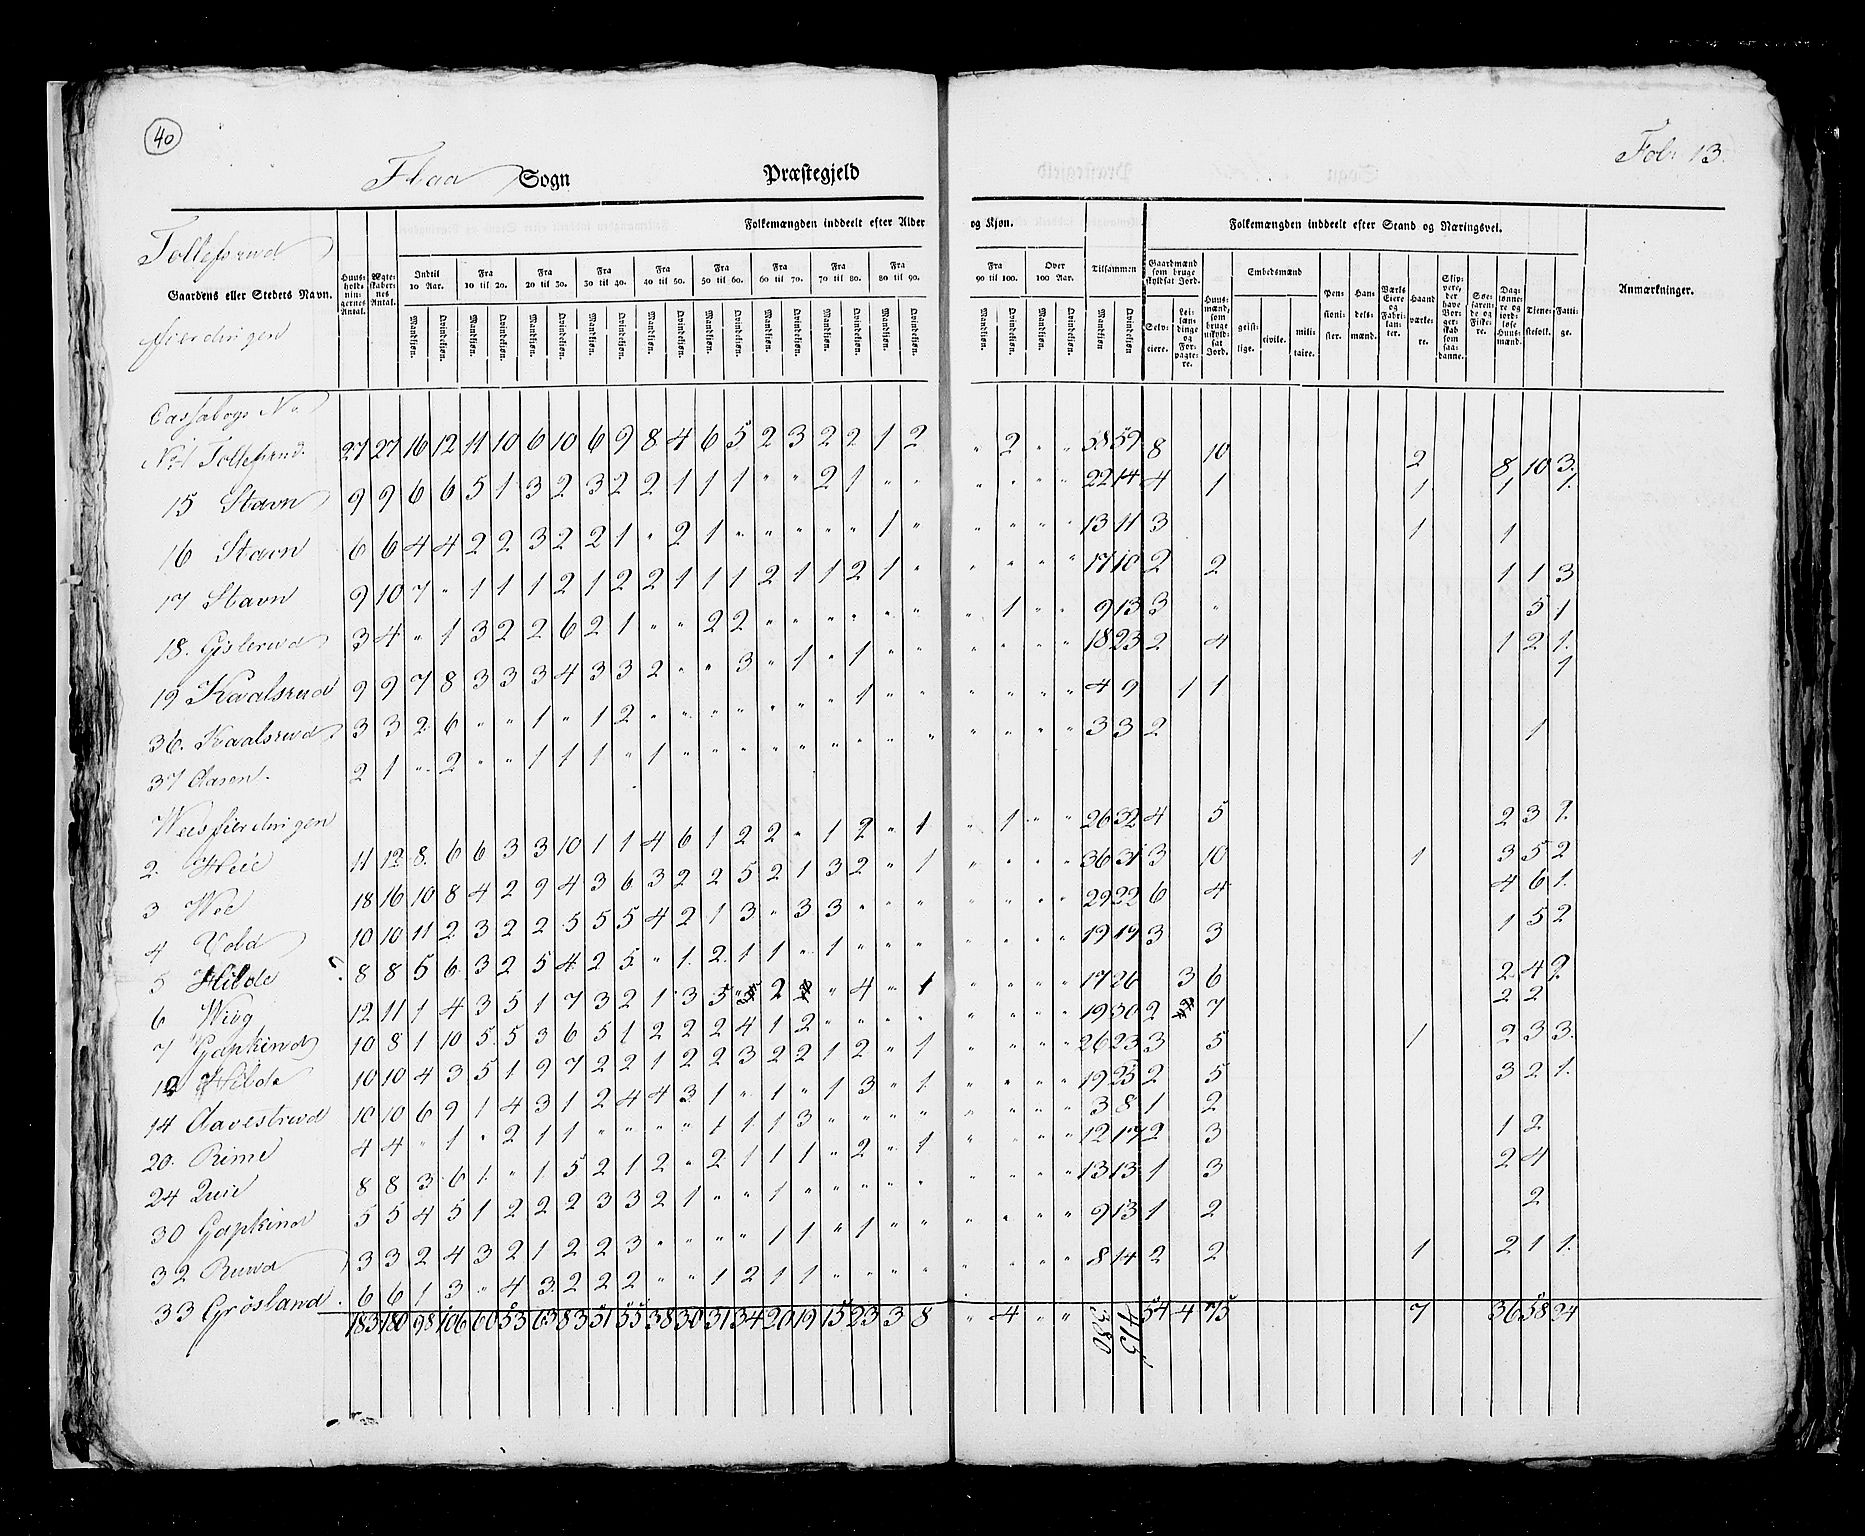 40
Fol. 13.
Flaa Sogn Præstegjeld
Tollefsrud
fierdingen
Gaardens eller Stedets Navn.
Huusholdningernes Antal.
Ægteskabernes Antal.
Folkemængden inddeelt efter Alder og Kjøn.
Indtil 10 Aar. Fra 10 til 20. Fra 20 til 30. Fra 30 til 40. Fra 40 til 50. Fra 50 til 60. Fra 60 til 70. Fra 70 til 80. Fra 80 til 90. Fra 90 til 100. Over 100 Aar. Tilsammen
Mandkjøn. Qvindekjøn. Mandkjøn. Qvindekjøn. Mandkjøn. Qvindekjøn. Mandkjøn. Qvindekjøn. Mandkjøn. Qvindekjøn. Mandkjøn. Qvindekjøn. Mandkjøn. Qvindekjøn. Mandkjøn. Qvindekjøn. Mandkjøn. Qvindekjøn. Mandkjøn. Qvindekjøn. Mandkjøn. Qvindekjøn. Mandkjøn Qvindekjøn
Folkemængden inddeelt efter Stand og Næringsvei.
Gaardmænd som bruge skyldsat Jord.
Selveiere.
Leilændinge og Forpagtere.
Huusmænd, som bruge uskyldsat Jord.
Embedsmænd
geistlige. civile. militaire.
Pensionister.
Handelsmænd.
Værks Eiere og Fabrikanter.
Haandværkere.
Skippere, der have Borgerskab som saadanne.
Søefarende og Fiskere.
Daglønnere og jordløse Huusmænd.
Tjenestefolk.
Fattige.
Anmærkninger.
No. 1 Tollefsrud. 27 27 16 12 11 10 6 10 6 9 8 4 6 5 2 3 2 2 1 2 " 2 " " 58 59 8 10 2 8 10 3.
15 Stavn 9 9 6 6 5 1 3 2 3 2 2 1 1 1 " " 2 1 " " " " " " 22 14 4 1 1 1 1.
16 Stavn 6 6 4 4 2 2 3 2 2 1 " 2 1 " " " " " 1 " " " " " 13 11 3 1 1
17 Stavn 9 10 7 " 1 1 1 2 1 2 2 1 1 1 2 1 1 2 1 " " " " " 17 10 2 2 1 1 3
18. Gislerud 3 4 " 1 3 2 2 6 2 1 " " 2 2 " " " " " " " 1 " " 9 13 3 " 5 1
19 Kaalsrud 9 9 7 8 3 3 3 4 3 3 2 " " 3 " 1 " 1 " " " " " " 18 23 2 4 1 2 1.
36. Kaalsrud 3 3 2 6 " " 1 " 1 2 " " " " " " " 1 " " " " " " 4 9 1 1 1
37 Aasen. 2 1 " 2 " " 1 1 1 " 1 " " " " " " " " " " " " " 3 3 2 1
2. Heie 11 12 8 6 6 3 3 10 1 1 4 6 1 2 2 " 1 2 " 1 " 1 " " 26 32 4 5 2 3 2.
3 Wee 18 16 10 8 4 2 9 4 3 6 3 2 2 5 2 1 3 2 " 1 " " " " 36 31 3 10 1 3 5 2
4 Vold 10 10 11 2 3 2 2 5 5 5 4 2 1 3 " 3 3 " " " " " " " 29 22 6 4 4 6 1.
5 Hilde 8 8 5 6 3 2 5 4 2 5 " 1 2 1 1 " 1 " " " " " " " 19 19 3 3 1 5 2
6 Wiig 12 11 1 4 3 5 1 7 3 2 1 3 5 2 " 4 " 1 " " " " 17 26 3 6 2 4 2
7 Gapkind 10 8 1 10 5 5 3 6 5 1 2 2 2 4 1 2 " " " " " " " " 19 30 2 7 2 2
12 Hilde 10 10 4 3 5 1 9 7 2 2 1 2 2 3 2 2 1 2 " 1 " " " " 26 23 3 5 1 2 3 3.
14 Aavestrud 10 10 6 9 1 4 3 1 2 4 4 3 1 " 1 " 1 3 " 1. " " " " 19 25 2 5 3 2 1.
20. Rime 4 4 " 1 " 2 1 1 " " " " 1 1 1 3 " " " " " " " " 3 8 1 2
24 8 8 3 6 1 " 1 5 2 1 2 " 2 1 1 1 " 2 " 1 " " " " 12 17 2 3 1 2
30 Gapkind 5 5 4 5 1 2 2 2 3 3 2 1 " " 1 " " " " " " " " " 13 13 1 3 2 4
32 Ruud 3 3 2 4 3 2 1 2 2 3 " " " " 1 1 " 1 " " " " " " 9 13 1 2 2
33 Grösland 6 6 1 3 " 4 3 2 2 2 " " 1 2 1 1 " " " " " " " " 8 14 2 2 1 2 1 1.
183 180 98 106 60 53 63 83 51 55 38 30 31 34 20 19 15 23 3 8 " 4 " " 380 415 54 4 75 7 36 58 24